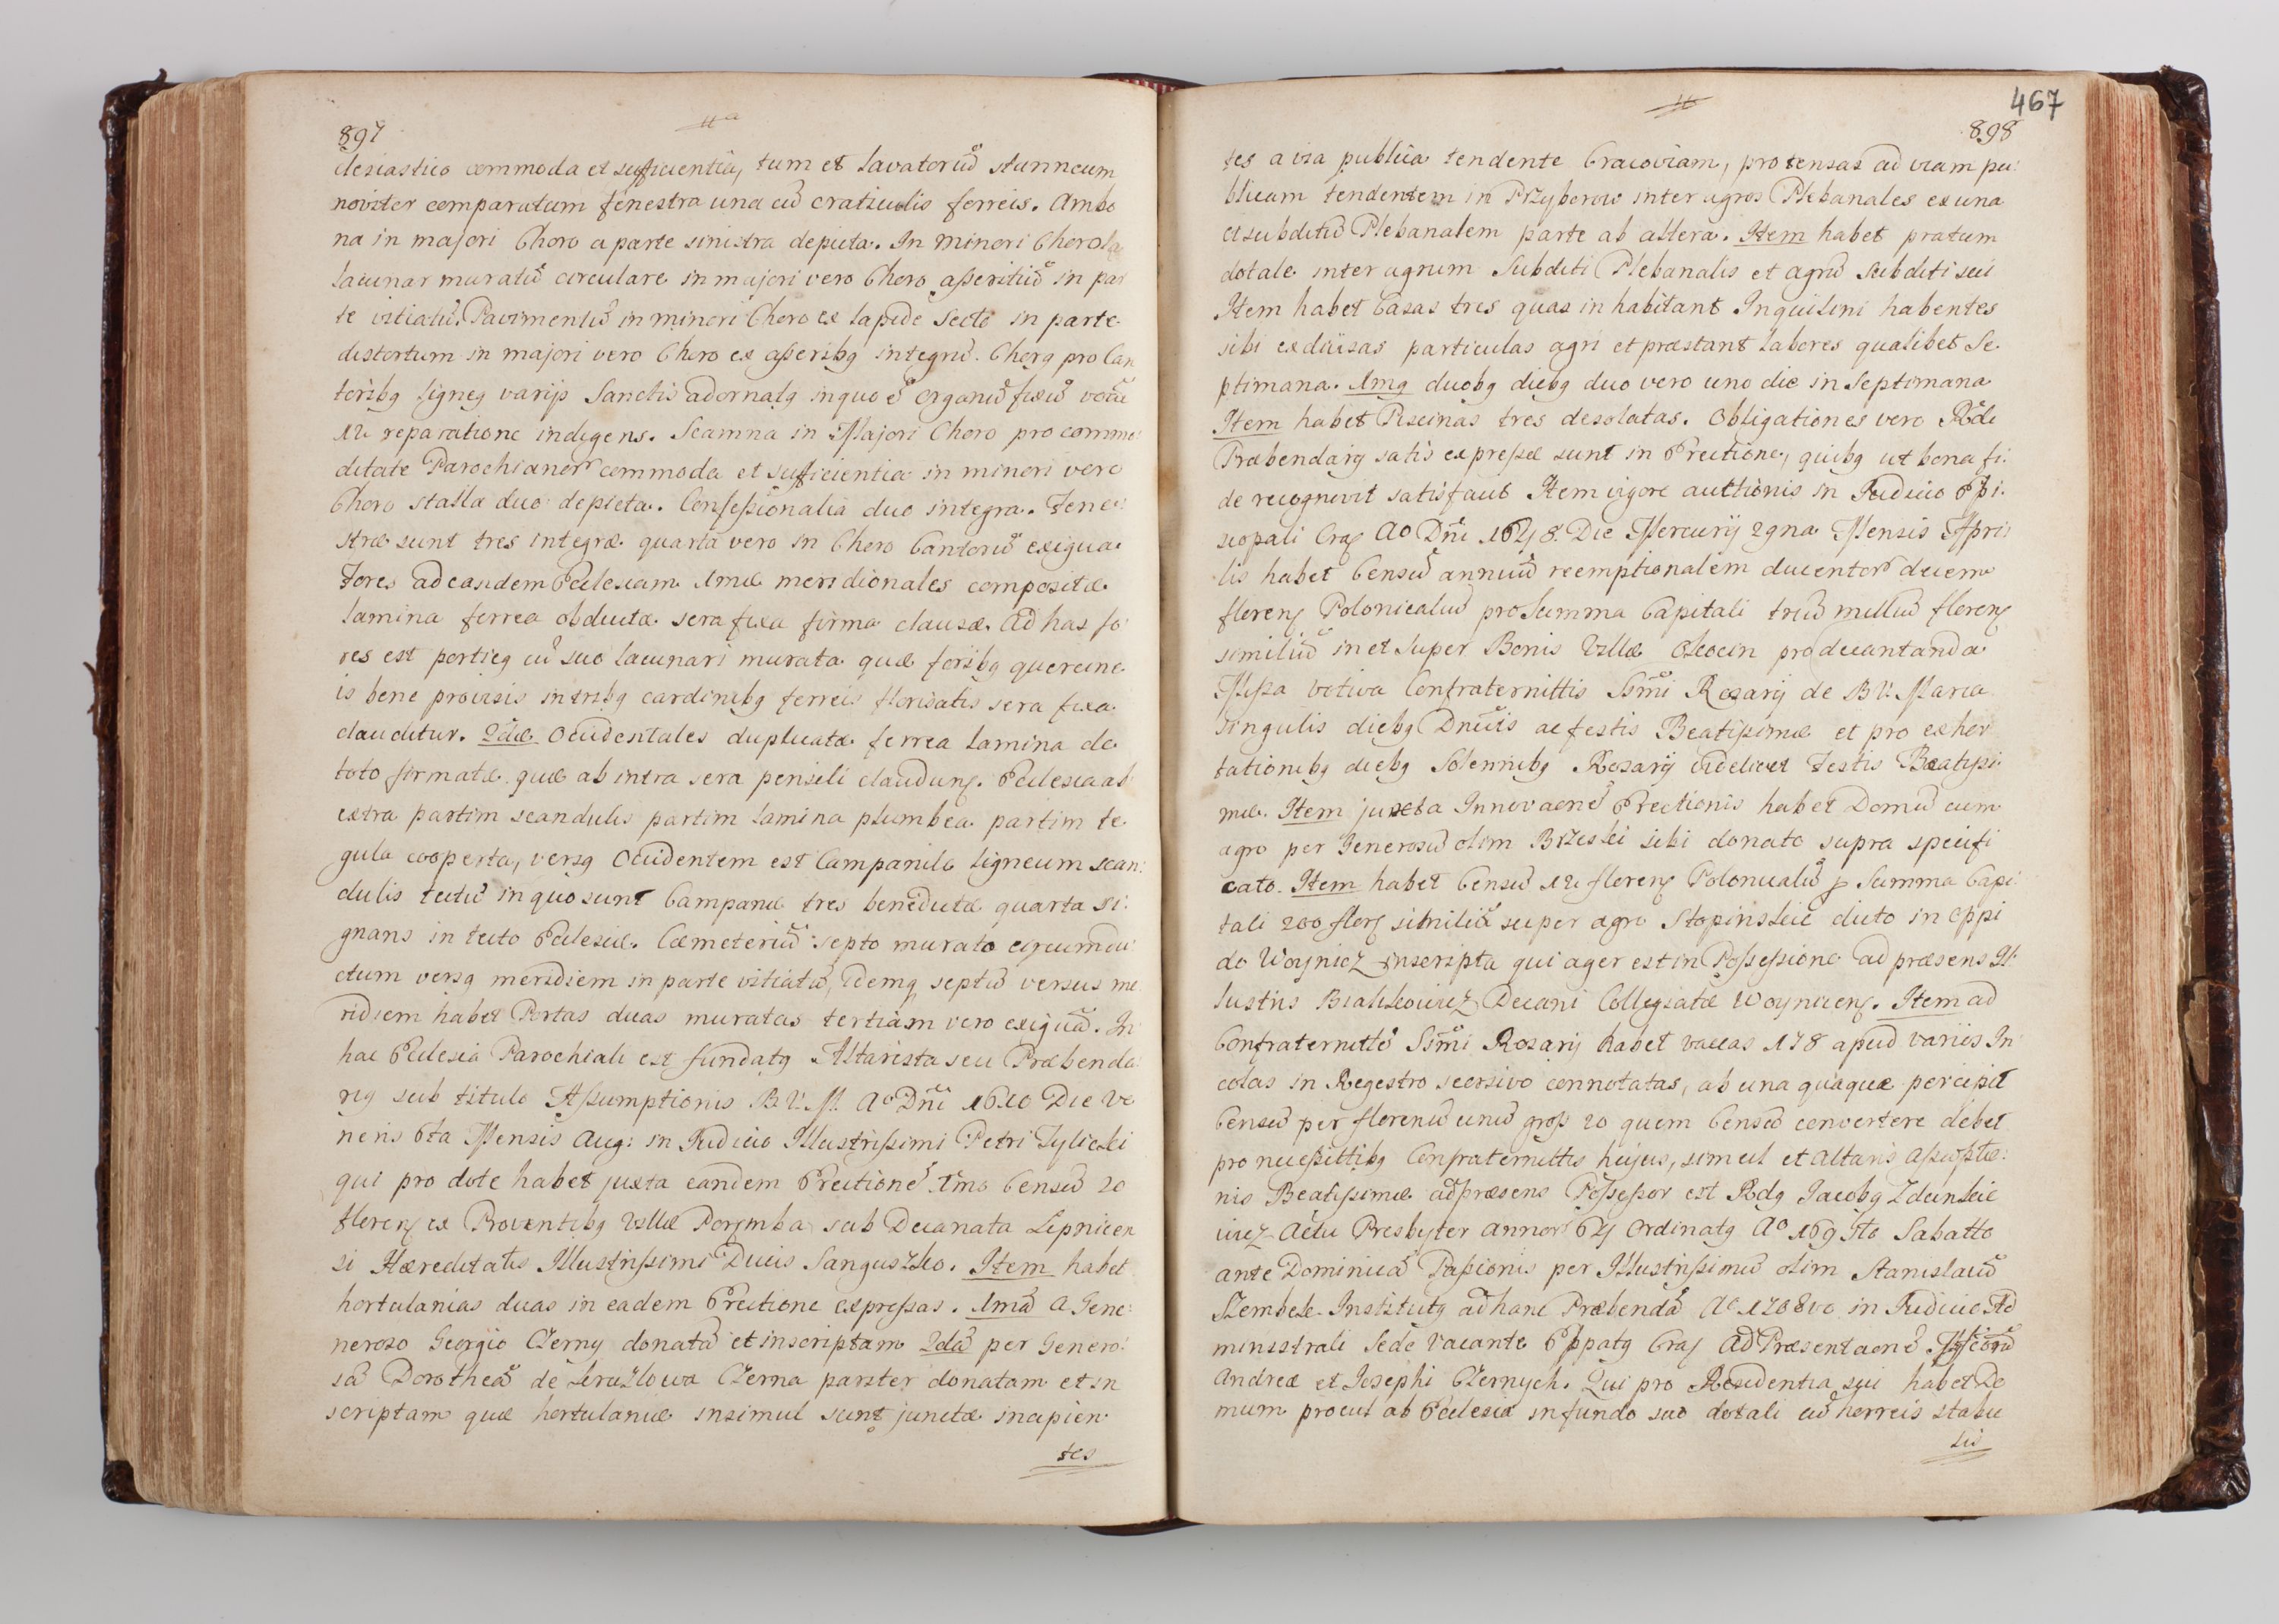 897
clesiastico commoda et sufficientia, tum et Lavatoriũ stanneum
noviter comparatum fenestra una cũ craticulis ferreis. Ambo
na in majori Choro a parte sinistra depicta. In minori Choro
Lacunar muratũ circulare in majori vero Choro asseritiũ in par
te vitiatũ. Pavimentũ in minori Choro ex lapide secto in parte
distortum in majori vero Choro ex asserib9 integrũ. Chor9 pro Can
torib9 ligne9 varijs Sanctis adornat9 in quo ẽ organũ fixũ
reparatione indigens. Scamna in Majori Choro pro commo:
ditate Parochianor commoda et sufficientia in minori vero
Choro stalla duo depicta. Confessionalia duo integra. Fene:
stræ sunt tres integræ quarta vero in Choro Cantorũ exigua.
Fores ad easdem Ecclesiam 1mæ meridionales compositæ
lamina ferrea obductæ sera fixa firma clausæ. Ad has fo
res est portic9 cũ suo lacunari murata quæ forib9 quercine
is bene provisis intrib9 cardinib9 ferreis florisatis sera fixa
clauditur. 2dæ Occidentales duplicatæ ferrea lamina de
toto firmatæ quæ ab intra sera pensili claudunt. Ecclesia ab
extra partim scandulis partim lamina plumbea partim te
gula cooperta, vers9 Occidentem est Campanile ligneum scan:
dulis tectũ in quo sunt Campanæ tres benedictæ quarta si:
gnans in tecto Ecclesiæ. Cæmeteriũ septo murato circumdu
ctum vers9 meridiem in parte vitiatũ, idemq septũ versus me
ridiem habet Portas duas muratas tertiam vero exiguã. In
hac Ecclesia Parochiali est fundat9 Altarista seu Præbenda
ri9 sub titulo Assumptionis B.V.M. Ao Dñi 1610 Die Ve
neris 6ta Mensis Aug: in Judicio Illustrissimi Petri Tylicki
qui pro dote habet juxta eandem Erectionẽ 1mo Censũ 20
floren ex Proventib9 Villæ Porymba sub Decanatu Lipnicen
si Hæreditatis Illustrissimi Ducis Sanguszko. Item habet
hortulanias duas in eadem Erectione expressas. 1mã a Gene:
neroso Georgio Czerny donatã et inscriptam 2dã per Genero:
sã Dorotheã de Czerna pariter donatam et in
scriptam quæ hortulaniæ insimul sunt junctæ incipien
tes
467
898
tes a via publica tendente Cracoviam, protensas ad viam pu:
blicam tendentem in Przyborow inter agros Plebanales ex una
et subditũ Plebanalem parte ab altera. Item habet pratum
dotale inter agrum Subditi Plebanalis et agrũ Subditi sui
Item habet Casas tres quas inhabitant Inquilini habentes
sibi exdivisas particulas agri et præstant labores qualibet Se
ptimana. 1m9 duob9 dieb9 duo vero uno die in Septimana
Item habet Piscinas tres desolatas. Obligationes vero Rdi
Præbendarij satis expressæ sunt in Erectione, quib9 ut bona fi:
de recognivit satisfacit Item vigore auctionis in Judicio Epi.
scopali Crac Ao Dñi 1648. Die Mercurij 29na Mensis Apri
lis habet Censũ annuũ reemptionalem ducentor decem
floren Polonicaliũ pro Summa Capitali triũ milliũ floren
similiũ in et super Bonis Villæ Okocin pro decantanda
Missa votiva Confraternittis Ssmi Rosarij de B.V. Maria
singulis dieb9 Dnicis ac festis Beatissimæ et pro exhor
tationib9 dieb9 Solennib9 Rosarij videlicet Festis Beatissi:
mæ. Item juxta Innovaonẽ Erectionis habet Domũ cum
agro per Generosũ olim Brzeski sibi donato supra specifi
cato. Item habet Censũ floren Polonicaliũ p Summa Capi
tali 200 floren similiũ super agro Stopinskie dicto in oppi
do Woynicz inscripta qui ager est in Possessione ad præsens Il
lustris Bialikowicz Decani Collegiatæ Woynicen. Item ad
Confraternittẽ Ssmi Rosarij habet vaccas 178 apud variis In
colas in Regestro seorsivo connotatas, ab una quaque percipit
Censũ per florenũ unũ gross 20 quem Censũ convertere debet
pro necessittib9 Confraternittis hujus, simul et Altaris Assũptio:
nis Beatissimæ ad præsens Possessor est Rd9 Jacob9
wicz Actu Presbyter annor 64 Ordinat9 Ao Sabatto
ante Dominicã Passionis per Illustrissimũ olim Stanislaũ
Szembek Institut9 ad hanc Præbendã Ao 1708vo in Judicio Ad
ministrali Sede Vacante Eppat9 Crac Ad Præsentaonẽ
Andreæ et Josephi Czernych. Qui pro Residentia sui habet Do
mum procul ab Ecclesia in fundo suo dotali cũ horreis stabu
lis